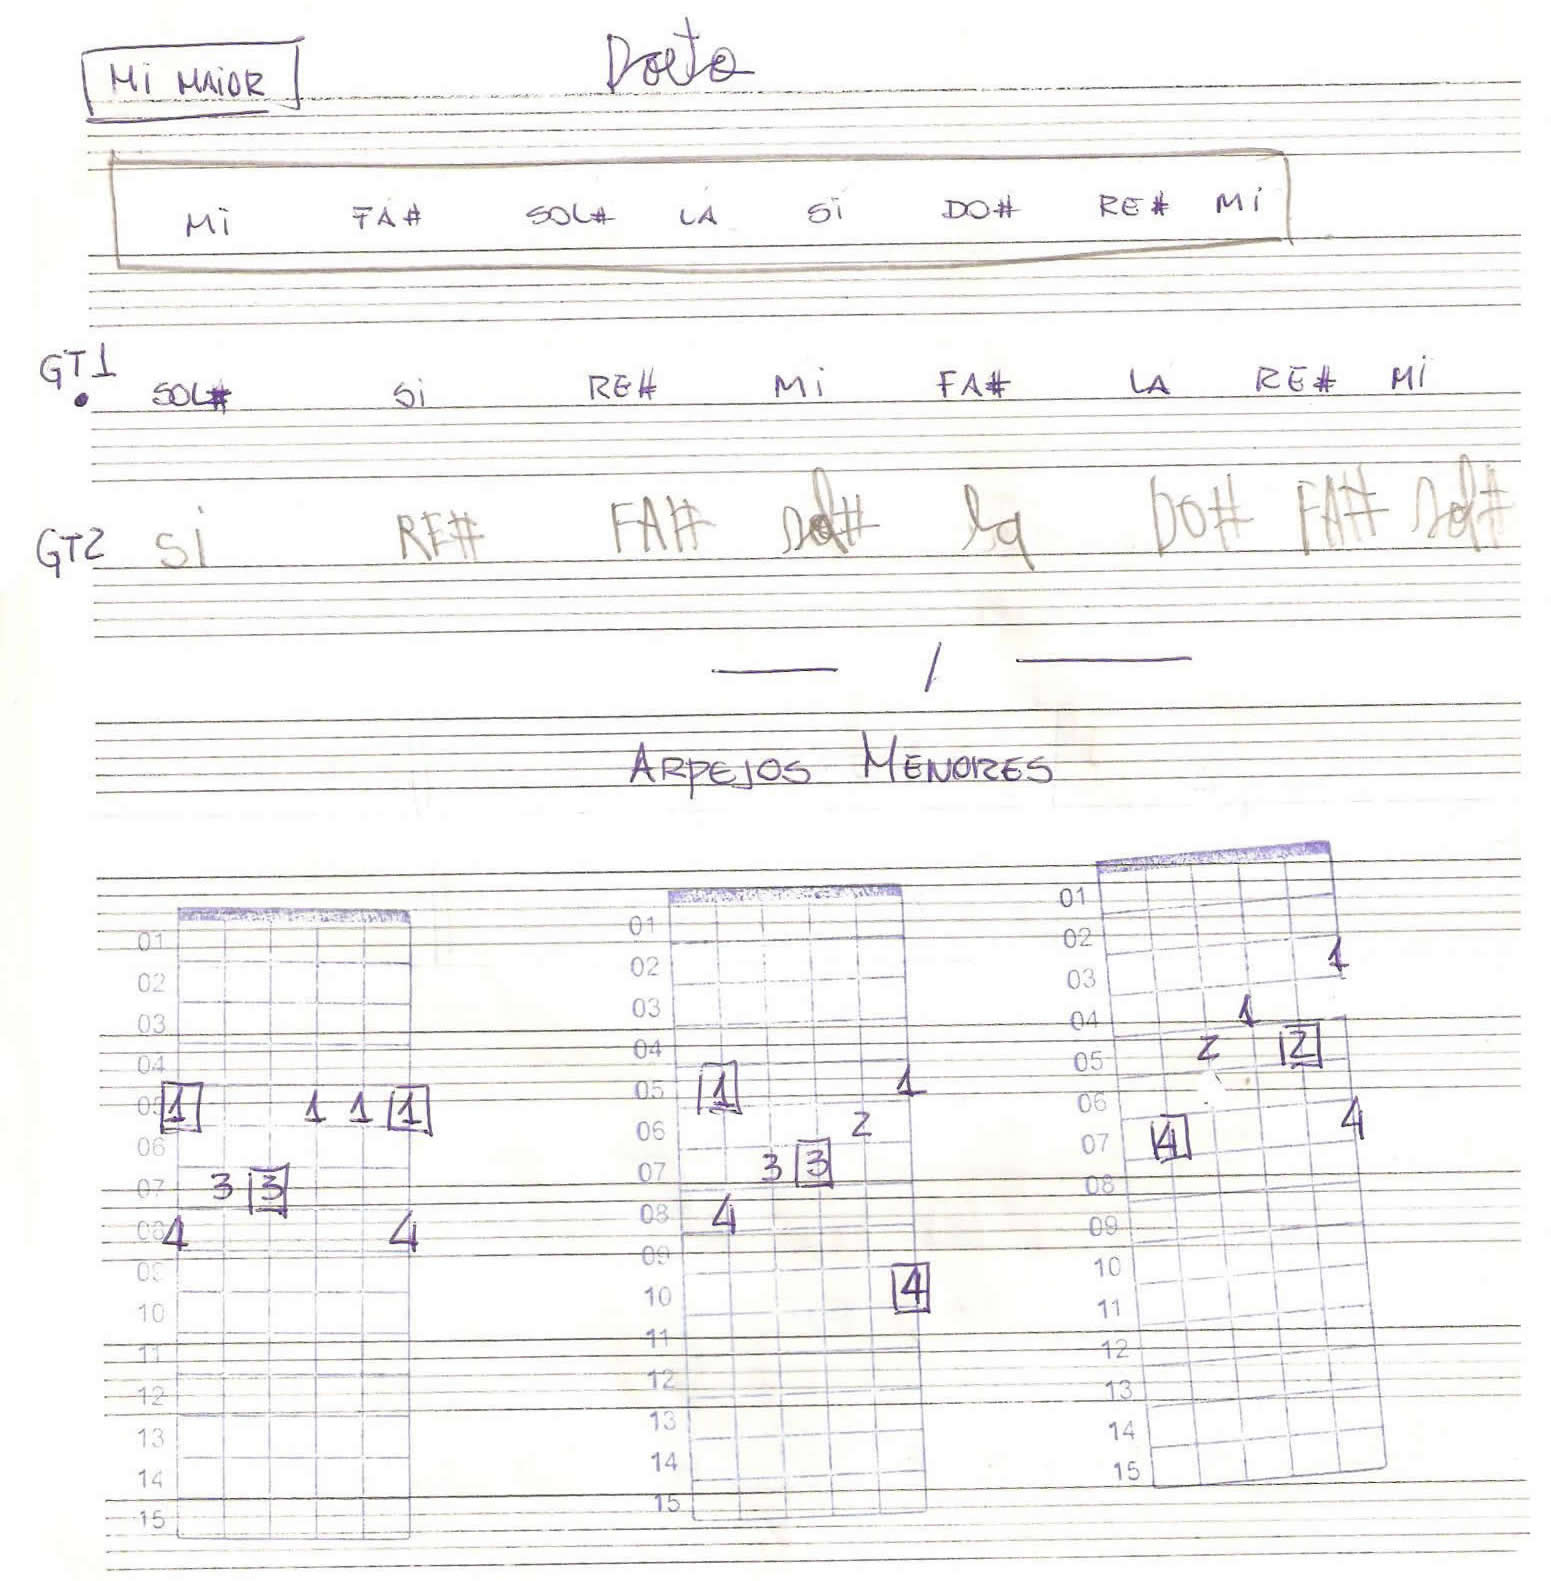 MI MAIOR Dueto
MI FA# SOL# LA SI DO# RE# MI
GT1 SOL# SI RE# MI FA# LA RE# MI
GT2 SI RE# FA# Sol# La DO# FA# Sol#
/
ARPEJOS MENORES
01
02
03
04
05 1 1 1 1
06
07 3 3
08 4 4
09
10
11
12
13
14
15
01
02
03
04
05 1 1
06 2
07 3 3
08 4
09
10 4
11
12
13
14
15
01
02
03 1
04 1
05 2 2
06
07 4 4
08
09
10
11
12
13
14
15